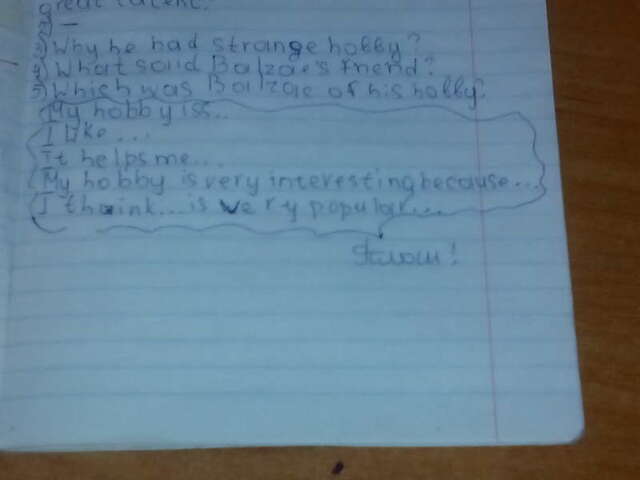 great talent.
2) —
3) Why he had strange hobby?
4) What said Balzac's friend?
5) Which was Balzac of his hobby?
My hobby iss..
I like...
It helps me...
My hobby is very interesting because...
I thoink...is very popular...